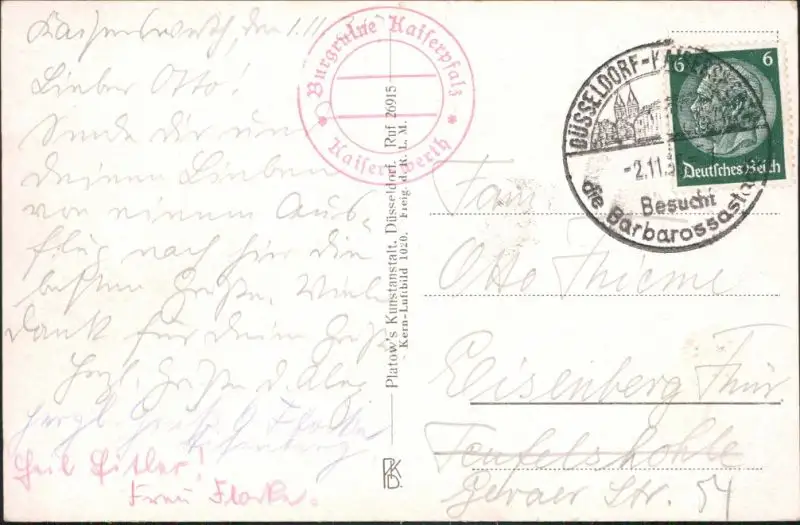 Kaiserswerth, den 1.11
Lieber Otto!
Sende dir und
deinen Lieben
von einem Aus-
flug nach hier die
besten Grüße. Viele
Dank für deine
Herzl. Grüße d.
Herzl. Grüße
Heil Hitler!
Frau Flocke.
Burgruine Kaiserpfalz
* Kaiserswerth *
Platow's Kunstanstalt, Düsseldorf, Ruf 26915
Kern-Luftbild 1020. Freig. d. R. L. M.
DÜSSELDORF-KAISERS
-2.11.3
Besucht
die Barbarossasta
6 6
Deutsches Reich
Fam.
Otto Thieme
Eisenberg Thür
Teufelshohle
Geraer Str. 54